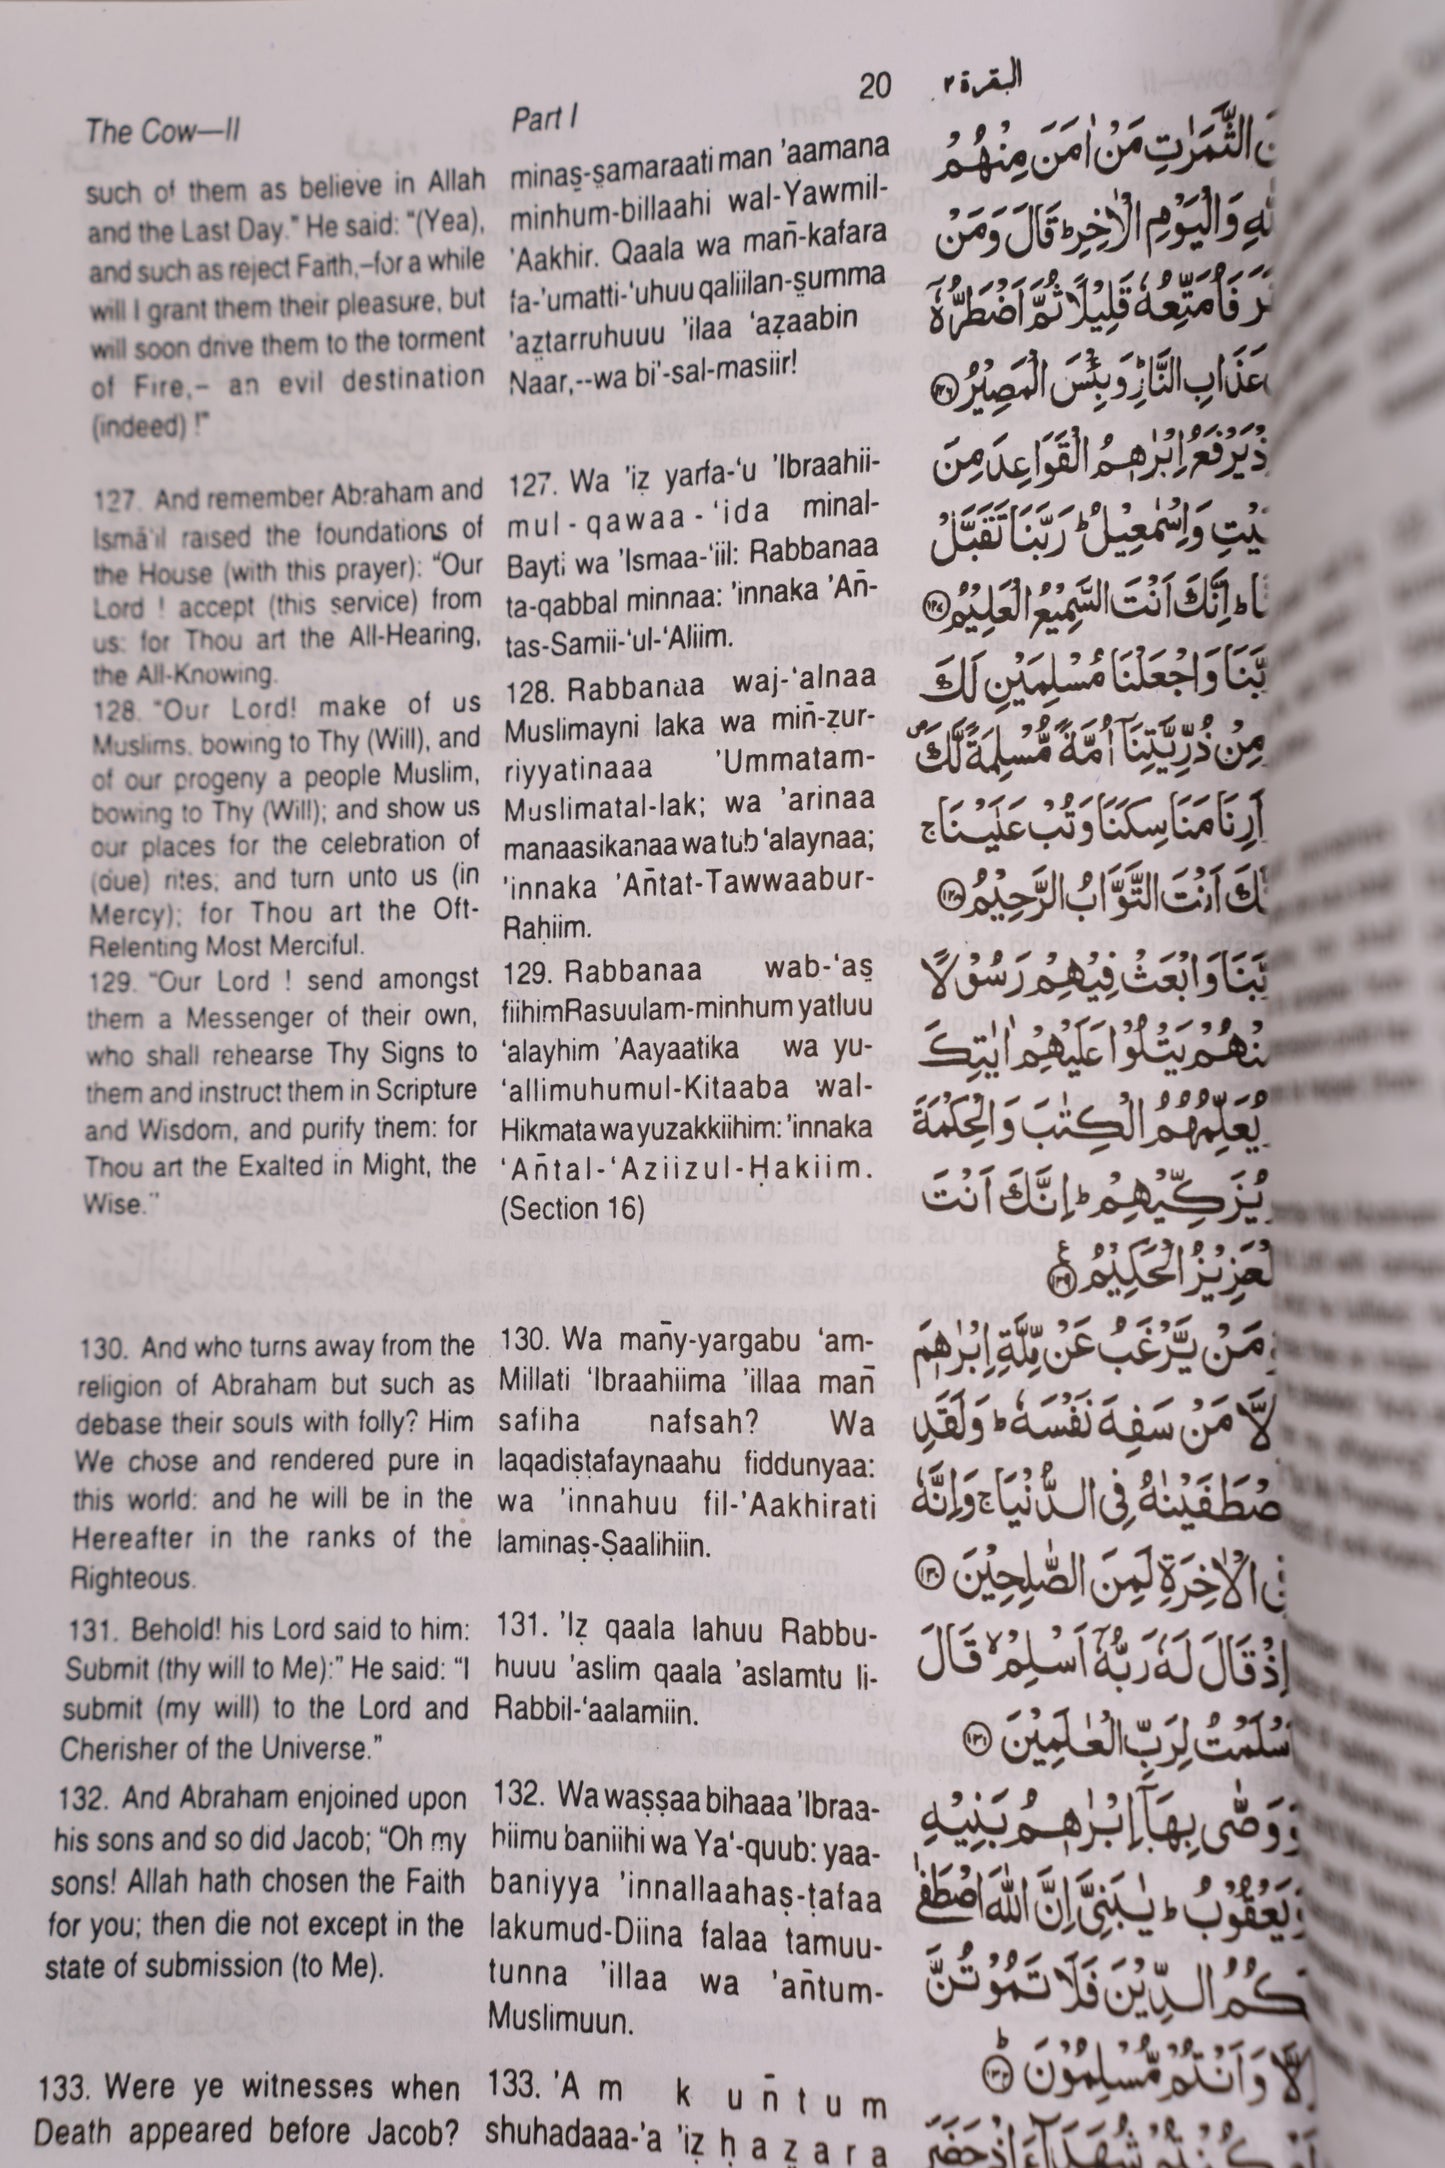 The Cow—II
Part I
20
البقرة ٢
such of them as believe in Allah
and the Last Day." He said: "(Yea),
and such as reject Faith,–for a while
will I grant them their pleasure, but
will soon drive them to the torment
of Fire,– an evil destination
(indeed) !"
127. And remember Abraham and
Ismā'il raised the foundations of
the House (with this prayer): "Our
Lord ! accept (this service) from
us: for Thou art the All-Hearing,
the All-Knowing.
128. "Our Lord! make of us
Muslims, bowing to Thy (Will), and
of our progeny a people Muslim,
bowing to Thy (Will); and show us
our places for the celebration of
(due) rites; and turn unto us (in
Mercy); for Thou art the Oft-
Relenting Most Merciful.
129. "Our Lord ! send amongst
them a Messenger of their own,
who shall rehearse Thy Signs to
them and instruct them in Scripture
and Wisdom, and purify them: for
Thou art the Exalted in Might, the
Wise."
130. And who turns away from the
religion of Abraham but such as
debase their souls with folly? Him
We chose and rendered pure in
this world: and he will be in the
Hereafter in the ranks of the
Righteous.
131. Behold! his Lord said to him:
Submit (thy will to Me):" He said: "I
submit (my will) to the Lord and
Cherisher of the Universe."
132. And Abraham enjoined upon
his sons and so did Jacob; "Oh my
sons! Allah hath chosen the Faith
for you; then die not except in the
state of submission (to Me).
133. Were ye witnesses when
Death appeared before Jacob?
minaṣ-ṣamaraati man 'aamana
minhum-billaahi wal-Yawmil-
'Aakhir. Qaala wa mañ-kafara
fa-'umatti-'uhuu qaliilan-ṣumma
'aẓtarruhuuu 'ilaa 'aẓaabin
Naar,--wa bi'-sal-masiir!
127. Wa 'iẓ yarfa-'u 'Ibraahii-
mul-qawaa-'ida minal-
Bayti wa 'Ismaa-'iil: Rabbanaa
ta-qabbal minnaa: 'innaka 'Añ-
tas-Samii-'ul-'Aliim.
128. Rabbanaa waj-'alnaa
Muslimayni laka wa miñ-ẓur-
riyyatinaaa 'Ummatam-
Muslimatal-lak; wa 'arinaa
manaasikanaa wa tub 'alaynaa;
'innaka 'Añtat-Tawwaabur-
Raḥiim.
129. Rabbanaa wab-'aṣ
fiihimRasuulam-minhum yatluu
'alayhim 'Aayaatika wa yu-
'allimuhumul-Kitaaba wal-
Hikmata wa yuzakkiihim: 'innaka
'Añtal-'Aziizul-Ḥakiim.
(Section 16)
130. Wa mañy-yargabu 'am-
Millati 'Ibraahiima 'illaa mañ
safiha nafsah? Wa
laqadiṣṭafaynaahu fiddunyaa:
wa 'innahuu fil-'Aakhirati
laminaṣ-Ṣaalihiin.
131. 'Iẓ qaala lahuu Rabbu-
huuu 'aslim qaala 'aslamtu li-
Rabbil-'aalamiin.
132. Wa waṣṣaa bihaaa 'Ibraa-
hiimu baniihi wa Ya'-quub: yaa-
baniyya 'innallaahaṣ-ṭafaa
lakumud-Diina falaa tamuu-
tunna 'illaa wa 'añtum-
Muslimuun.
133. 'A m k u ñ t u m
shuhadaaa-'a 'iẓ ḥ a ẓ a r a
الثَّمَرٰتِ مَنْ اٰمَنَ مِنْهُمْ
وَالْيَوْمِ الْاٰخِرِ ؕ قَالَ وَمَنْ
فَاُمَتِّعُهٗ قَلِيْلًا ثُمَّ اَضْطَرُّهٗٓ
عَذَابِ النَّارِ ؕ وَبِئْسَ الْمَصِيْرُ ﴿١٢٦﴾
يَرْفَعُ اِبْرٰهٖمُ الْقَوَاعِدَ مِنَ
وَاِسْمٰعِيْلُ ؕ رَبَّنَا تَقَبَّلْ
اِنَّكَ اَنْتَ السَّمِيْعُ الْعَلِيْمُ ﴿١٢٧﴾
وَاجْعَلْنَا مُسْلِمَيْنِ لَكَ
مِنْ ذُرِّيَّتِنَآ اُمَّةً مُّسْلِمَةً لَّكَ ۪
اَرِنَا مَنَاسِكَنَا وَتُبْ عَلَيْنَا ۚ
اَنْتَ التَّوَّابُ الرَّحِيْمُ ﴿١٢٨﴾
وَابْعَثْ فِيْهِمْ رَسُوْلًا
يَتْلُوْا عَلَيْهِمْ اٰيٰتِكَ
يُعَلِّمُهُمُ الْكِتٰبَ وَالْحِكْمَةَ
يُزَكِّيْهِمْ ؕ اِنَّكَ اَنْتَ
الْحَكِيْمُ ﴿١٢٩﴾
مَنْ يَّرْغَبُ عَنْ مِّلَّةِ اِبْرٰهٖمَ
مَنْ سَفِهَ نَفْسَهٗ ؕ وَلَقَدِ
فِى الدُّنْيَا ۚ وَاِنَّهٗ
الْاٰخِرَةِ لَمِنَ الصّٰلِحِيْنَ ﴿١٣٠﴾
اِذْ قَالَ لَهٗ رَبُّهٗٓ اَسْلِمْ ۙ قَالَ
لِرَبِّ الْعٰلَمِيْنَ ﴿١٣١﴾
وَوَصّٰى بِهَآ اِبْرٰهٖمُ بَنِيْهِ
وَيَعْقُوْبُ ؕ يٰبَنِىَّ اِنَّ اللّٰهَ اصْطَفٰى
الدِّيْنَ فَلَا تَمُوْتُنَّ
وَاَنْتُمْ مُّسْلِمُوْنَ ﴿١٣٢﴾